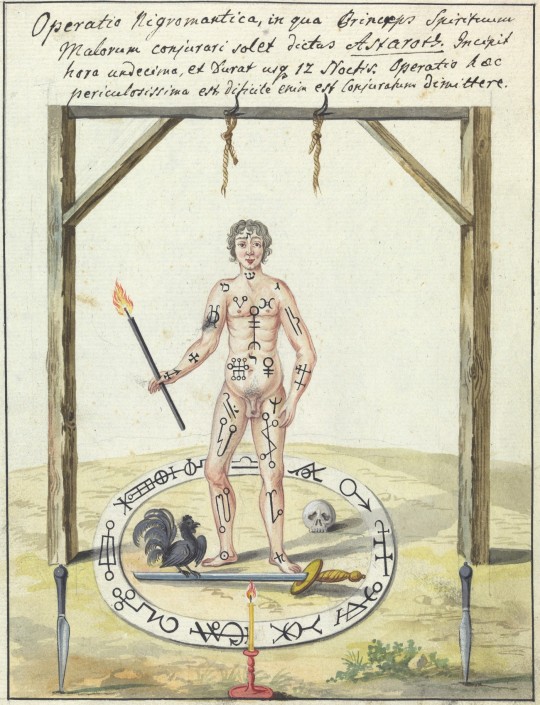 Operatio Nigromantica, in qua Princeps Spirituum
Malorum conjurari solet dictus Astaroth. Incipit
hora undecima, et Durat usq 12 Noctis. Operatio haec
periculosissima est Dificile enim est Conjuratum dimittere.